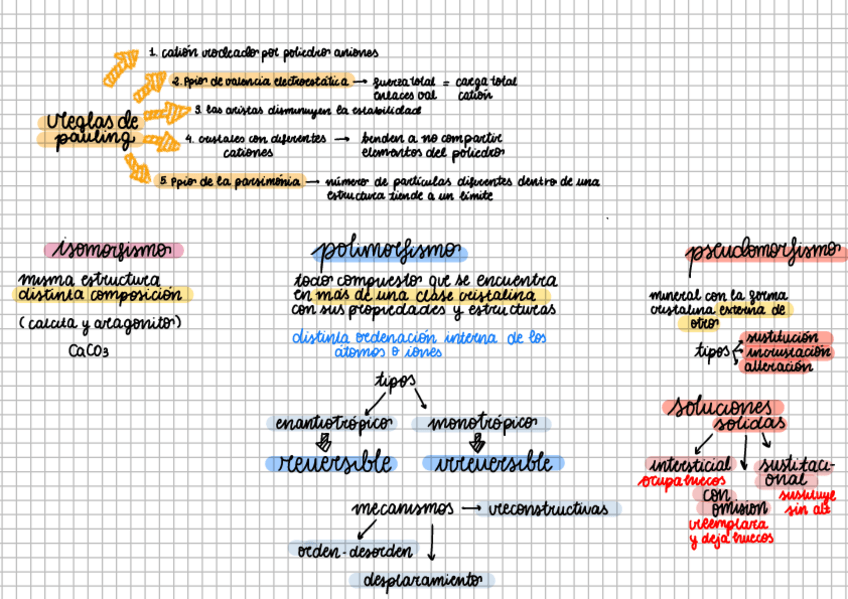 1. catión rodeado por poliedro aniones
2. Ppio de valencia electroestática → fuerza total = carga total
enlaces val catión
3. las aristas disminuyen la estabilidad
reglas de
pauling
4. cristales con diferentes → tienden a no compartir
cationes elementos del poliedro
5. Ppio de la parsimónia → número de partículas diferentes dentro de una
estructura tiende a un límite
isomorfismo
misma estructura
distinta composición
(calcita y aragonito)
CaCO3
polimorfismo
todo compuesto que se encuentra
en más de una clase cristalina
con sus propiedades y estructuras
distinta ordenación interna de los
átomos o iones
tipos
enantiotrópico monotrópico
reversible irreversible
mecanismos → reconstructivas
orden-desorden
desplazamiento
pseudomorfismo
mineral con la forma
cristalina externa de
otro
tipos
sustitución
incrustación
alteración
soluciones
solidas
intersticial
ocupa huecos
con
omision
reemplaza
y deja huecos
sustitaci-
onal
sustituye
sin alt